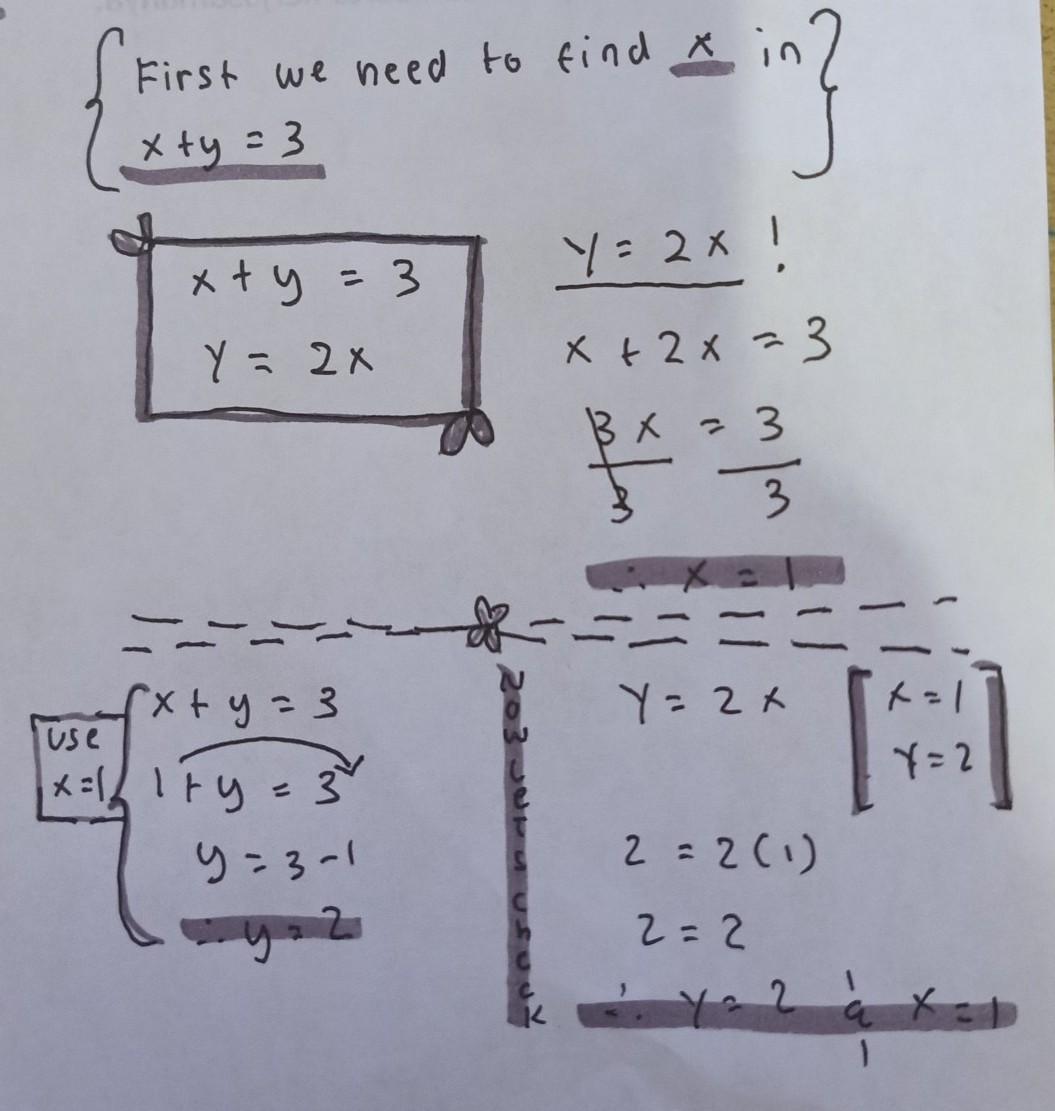 First we need to find x in
x + y = 3
x + y = 3
y = 2x
y = 2x !
x + 2x = 3
3x = 3
3 3
∴ x = 1
use
x = 1
x + y = 3
1 + y = 3
y = 3 - 1
∴ y = 2
y = 2x
x = 1
y = 2
2 = 2(1)
2 = 2
∴ y = 2 & x = 1